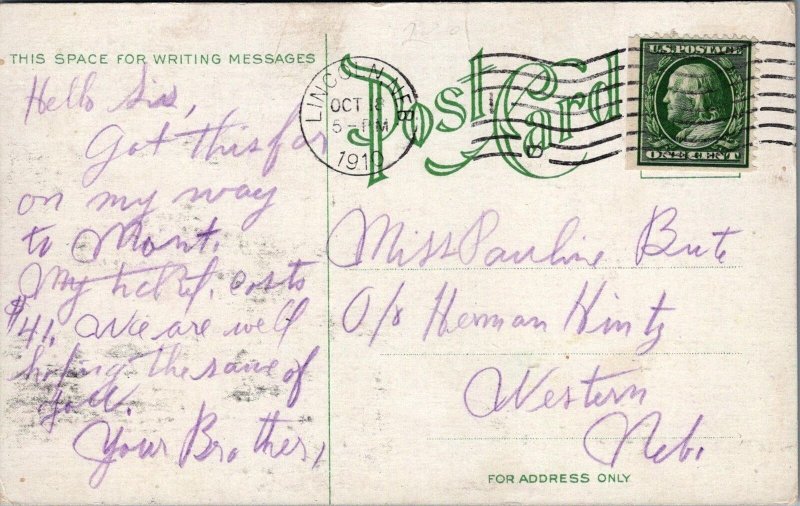 THIS SPACE FOR WRITING MESSAGES
Hello Sis,
Got this far
on my way
to Mont.
My ticket, costs
$41. We are well
hoping the same of
you.
Your Brother,
Post Card
LINCOLN, NEB
OCT 8
5-PM
1910
U.S. POSTAGE
ONE CENT
Miss Pauline Bute
C/o Herman Hintz
Western
Neb.
FOR ADDRESS ONLY